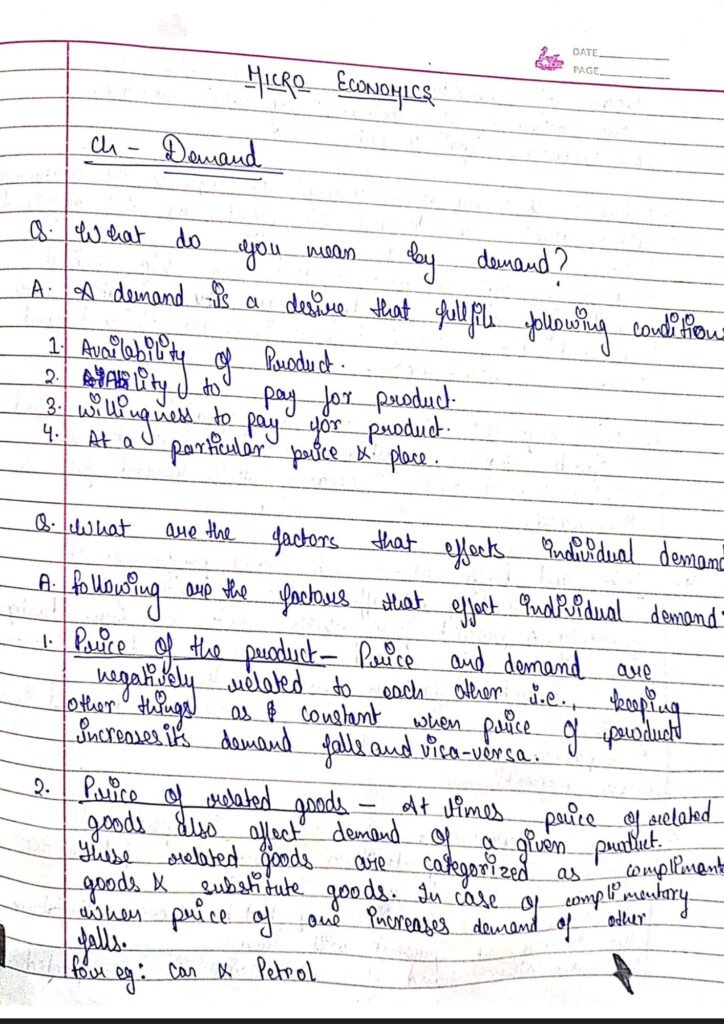 DATE
PAGE
MICRO ECONOMICS
Ch - Demand
Q. What do you mean by demand?
A. A demand is a desire that fullfils following condition
1. Availability of Product.
2. Ability to pay for product.
3. Willingness to pay for product.
4. At a particular price & place.
Q. What are the factors that effects individual demand
A. following are the factors that effect individual demand:
1. Price of the product - Price and demand are
negatively related to each other i.e., keeping
other things as constant when price of product
increases its demand falls and visa-versa.
2. Price of related goods - At times price of related
goods also affect demand of a given product.
These related goods are categorized as compliment
goods & substitute goods. In case of complimentory
when price of one increases demand of other
falls.
for eg: Car & Petrol